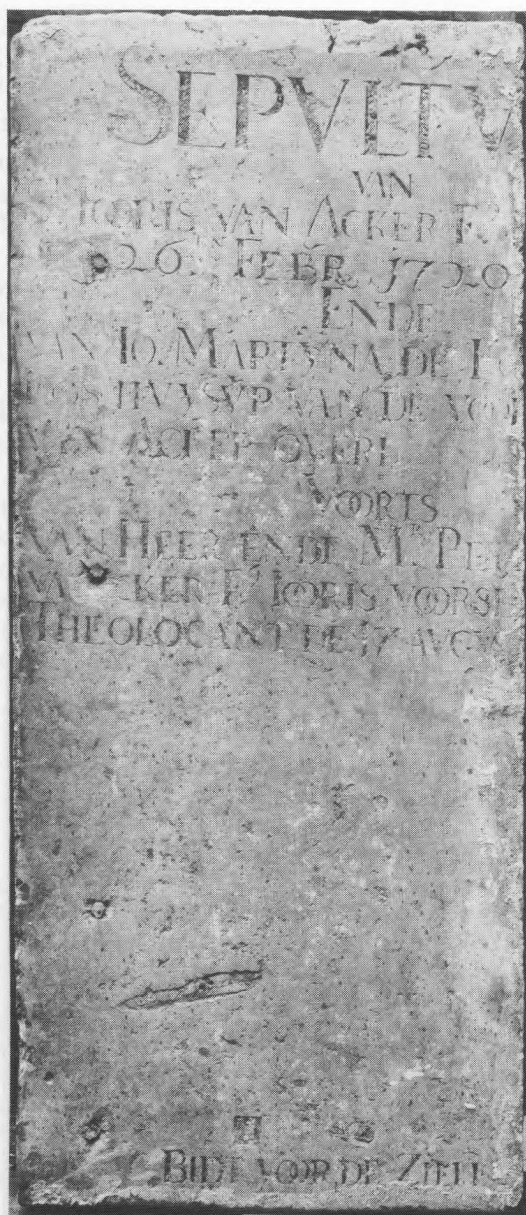 SEPVLTV
VAN
IOORIS VAN ACKER Fˢ
26 FEBR 1720
ENDE
VAN IO. MARTYNA DE
HVYSVR VAN DE VOO
VAN ACKER OVERL
VOORTS
VAN HEER ENDE Mᴿ PE
ACKER Fˢ IOORIS VOORS
THEOLOGANT DE 17 AVGV
BIDT VOOR DE ZIELE